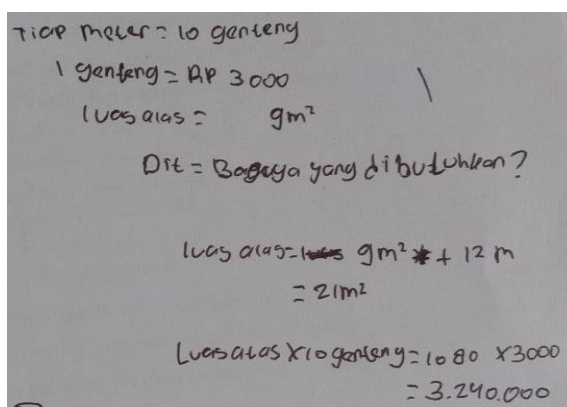 Tiap meter = 10 genteng
1 genteng = RP 3000
luas alas = 9m²
Dit = Bagaya yang dibutuhkan?
luas alas = 9m² + 12 m
= 21m²
Luas atas X 10 genteng = 1080 X 3000
= 3.240.000